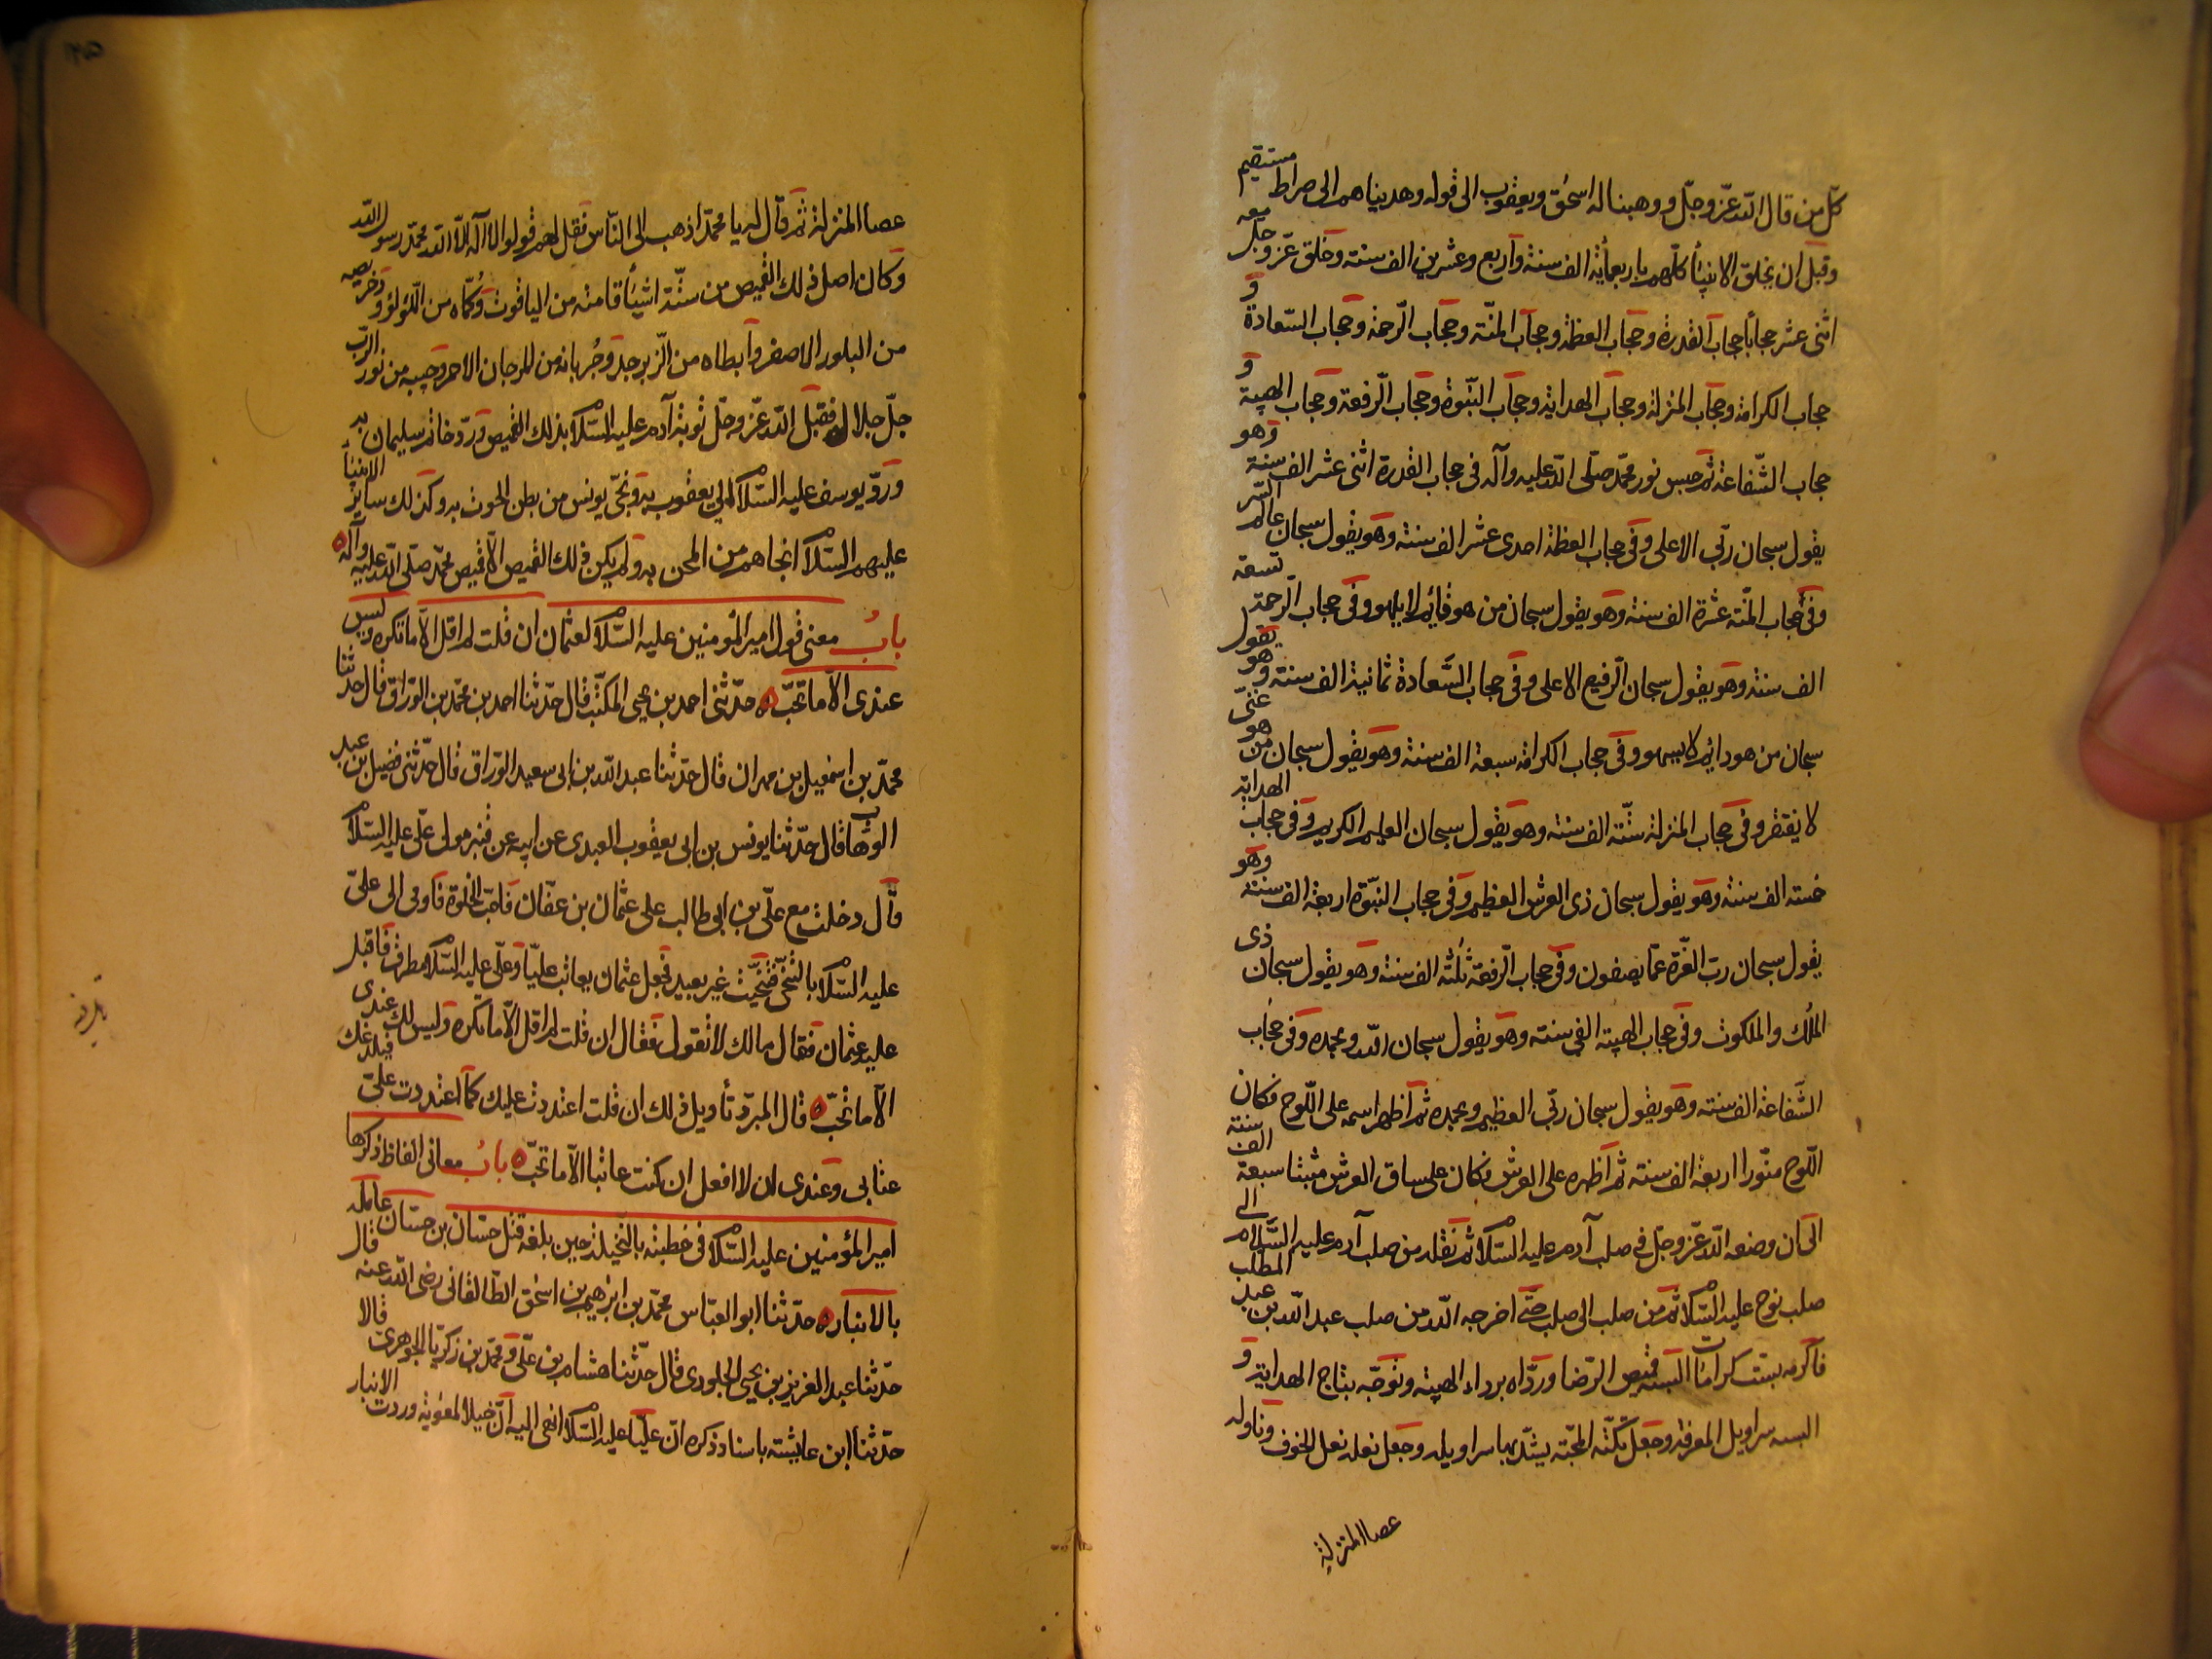 كلّ من قال اللّه عزّ وجلّ ووهبنا له اسحٰق ويعقوب الى قوله وهديناهم الى صراط مستقيم
وقبل ان يخلق الانبيٰأ كلّهم باربعمأئة الف سنة وأربع وعشرين الف سنة وخلق عزّ وجلّ معه
اثنى عشر حجاباً حجاب القدرة وحجاب العظمة وحجاب المنّة وحجاب الرّحمة وحجاب السّعادة و
حجاب الكرامة وحجاب المنزلة وحجاب الهداية وحجاب النّبوة وحجاب الرّفعة وحجاب الهيبة و
حجاب الشّفاعة ثم حبس نور محمّد صلّى اللّه عليه وآله فى حجاب القدرة اثنى عشر الف سنة وهو
يقول سبحان ربّى الاعلى وفى حجاب العظمة احدى عشر الف سنة وهو يقول سبحان عالم السّر
وفى حجاب المنّة عشرة الف سنة وهو يقول سبحان من هو قائم لا يلهو وفى حجاب الرحمة تسعة
الف سنة وهو يقول سبحان الرّفيع الاعلى وفى حجاب السّعادة ثمانية الف سنة وهو يقول
سبحان من هو دايم لا يسهو وفى حجاب الكرامة سبعة الف سنة وهو يقول سبحان من هو غنىّ
لا يفتقر وفى حجاب المنزلة ستّة الف سنة وهو يقول سبحان العليم الكريم وفى حجاب الهداية
خمسة الف سنة وهو يقول سبحان ذى العرش العظيم وفى حجاب النّبوّة اربعة الف سنة وهو
يقول سبحان ربّ العزّة عمّا يصفون وفى حجاب الرّفعة ثلٰثة الف سنة وهو يقول سبحان ذى
الملك والملكوت وفى حجاب الهيبة الفى سنة وهو يقول سبحان اللّه وبحمده وفى حجاب
الشّفاعة الف سنة وهو يقول سبحان ربّى العظيم وبحمده ثم اظهر اسمه على اللّوح فكان
اللّوح منّورا اربعة الف سنة ثم اظهره على العرش فكان على ساق العرش مثبتا سبعة الف سنة
الى ان وضعه اللّه عزّ وجلّ فى صلب آدم عليه السّلام ثم نقله من صلب آدم عليه السّلام الى
صلب نوح عليه السّلام ثم من صلب الى صلب حتّى اخرجه اللّه من صلب عبد اللّه بن عبد المطلب
فاكرمه بستّ كرامات البسه قميص الرّضا وردّاه برداء الهيبة وتوّجه بتاج الهداية و
البسه سراويل المعرفة وجعل تكّته المحبّة يشدّ بها سراويله وجعل نعله نعل الخوف وناوله
عصا المنزلة
عصا المنزلة ثم قال له يا محمّد اذهب الى النّاس فقل لهم قولوا لا اله الّا اللّه محمّد رسول اللّه
وكان اصل ذلك القميص من ستّة اشيٰأ قامته من الياقوت وكُمّاه من اللّؤلؤ ودخريصه
من البلور الاصفر وابطاه من الزّبرجد وجُربانه من المرجان الاحمر وجيبه من نور الرّب
جلّ جلاله فقبل اللّه عزّ وجلّ توبة آدم عليه السّلام بذلك القميص وردّ خاتم سليمان به
وردّ يوسف عليه السّلام الى يعقوب به ونجّى يونس من بطن الحوت به وكذلك ساير الانبيأ
عليهم السّلام انجاهم من المحن به ولم يكن ذلك القميص الّا قميص محمّد صلّى اللّه عليه وآله
بابُ معنى قول امير المؤمنين عليه السّلام لعثمان ان قلت لم اقل الّا ما تكره وليس
عندى الّا ما تحبّ حدّثنى احمد بن يحيى المكتّب قال حدّثنا احمد بن محمّد بن الورّاق قال حدّثنا
محمّد بن اسمٰعيل بن مهران قال حدّثنا عبد اللّه بن ابى سعيد الورّاق قال حدّثنى فضيل بن عبد
الوهّاب قال حدّثنا يونس بن ابى يعقوب العبدى عن ابيه عن قنبر مولى علىّ عليه السّلام
قال دخلت مع علىّ بن ابى طالب على عثمان بن عفّان فاحبّ الخلوة فاومى الى علىّ
عليه السّلام بالتّنحّى فتنحّيت غير بعيد فجعل عثمان يعاتب عليّا وعلىّ عليه السّلام مطرق فاقبل
عليه عثمان فقال مالك لا تقول فقال ان قلت لم اقل الّا ما تكره وليس لك عندى
الّا ما تحبّ قال المبرّد تأويل ذلك ان قلت اعتددت عليك كما اعتددت علىّ فيلدغك
عتابى وعندى ان لا افعل ان كنت عاتبا الّا ما تحبّ بابُ معانى الفاظ ذكرها
امير المؤمنين عليه السّلام فى خطبته بالنّخيلة حين بلغه قتل حسّان بن حسّان عامله
بالانبار حدّثنا ابو العبّاس محمّد بن ابرٰهيم بن اسحٰق الطّالقانى رضى اللّه عنه قال
حدّثنا عبد العزيز بن يحيى الجلودى قال حدّثنا هشام بن علىّ ومحمّد بن زكريّا الجوهرى قالا
حدّثنا ابن عايشة باسناد ذكره انّ عليّا عليه السّلام انهى اليه انّ خيلا لمعٰوية وردت الانبار